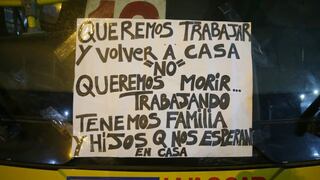 QUEREMOS TRABAJAR
Y VOLVER A CASA
"NO"
QUEREMOS MORIR...
TRABAJANDO
TENEMOS FAMILIA
Y HIJOS Q NOS ESPERAN
EN CASA